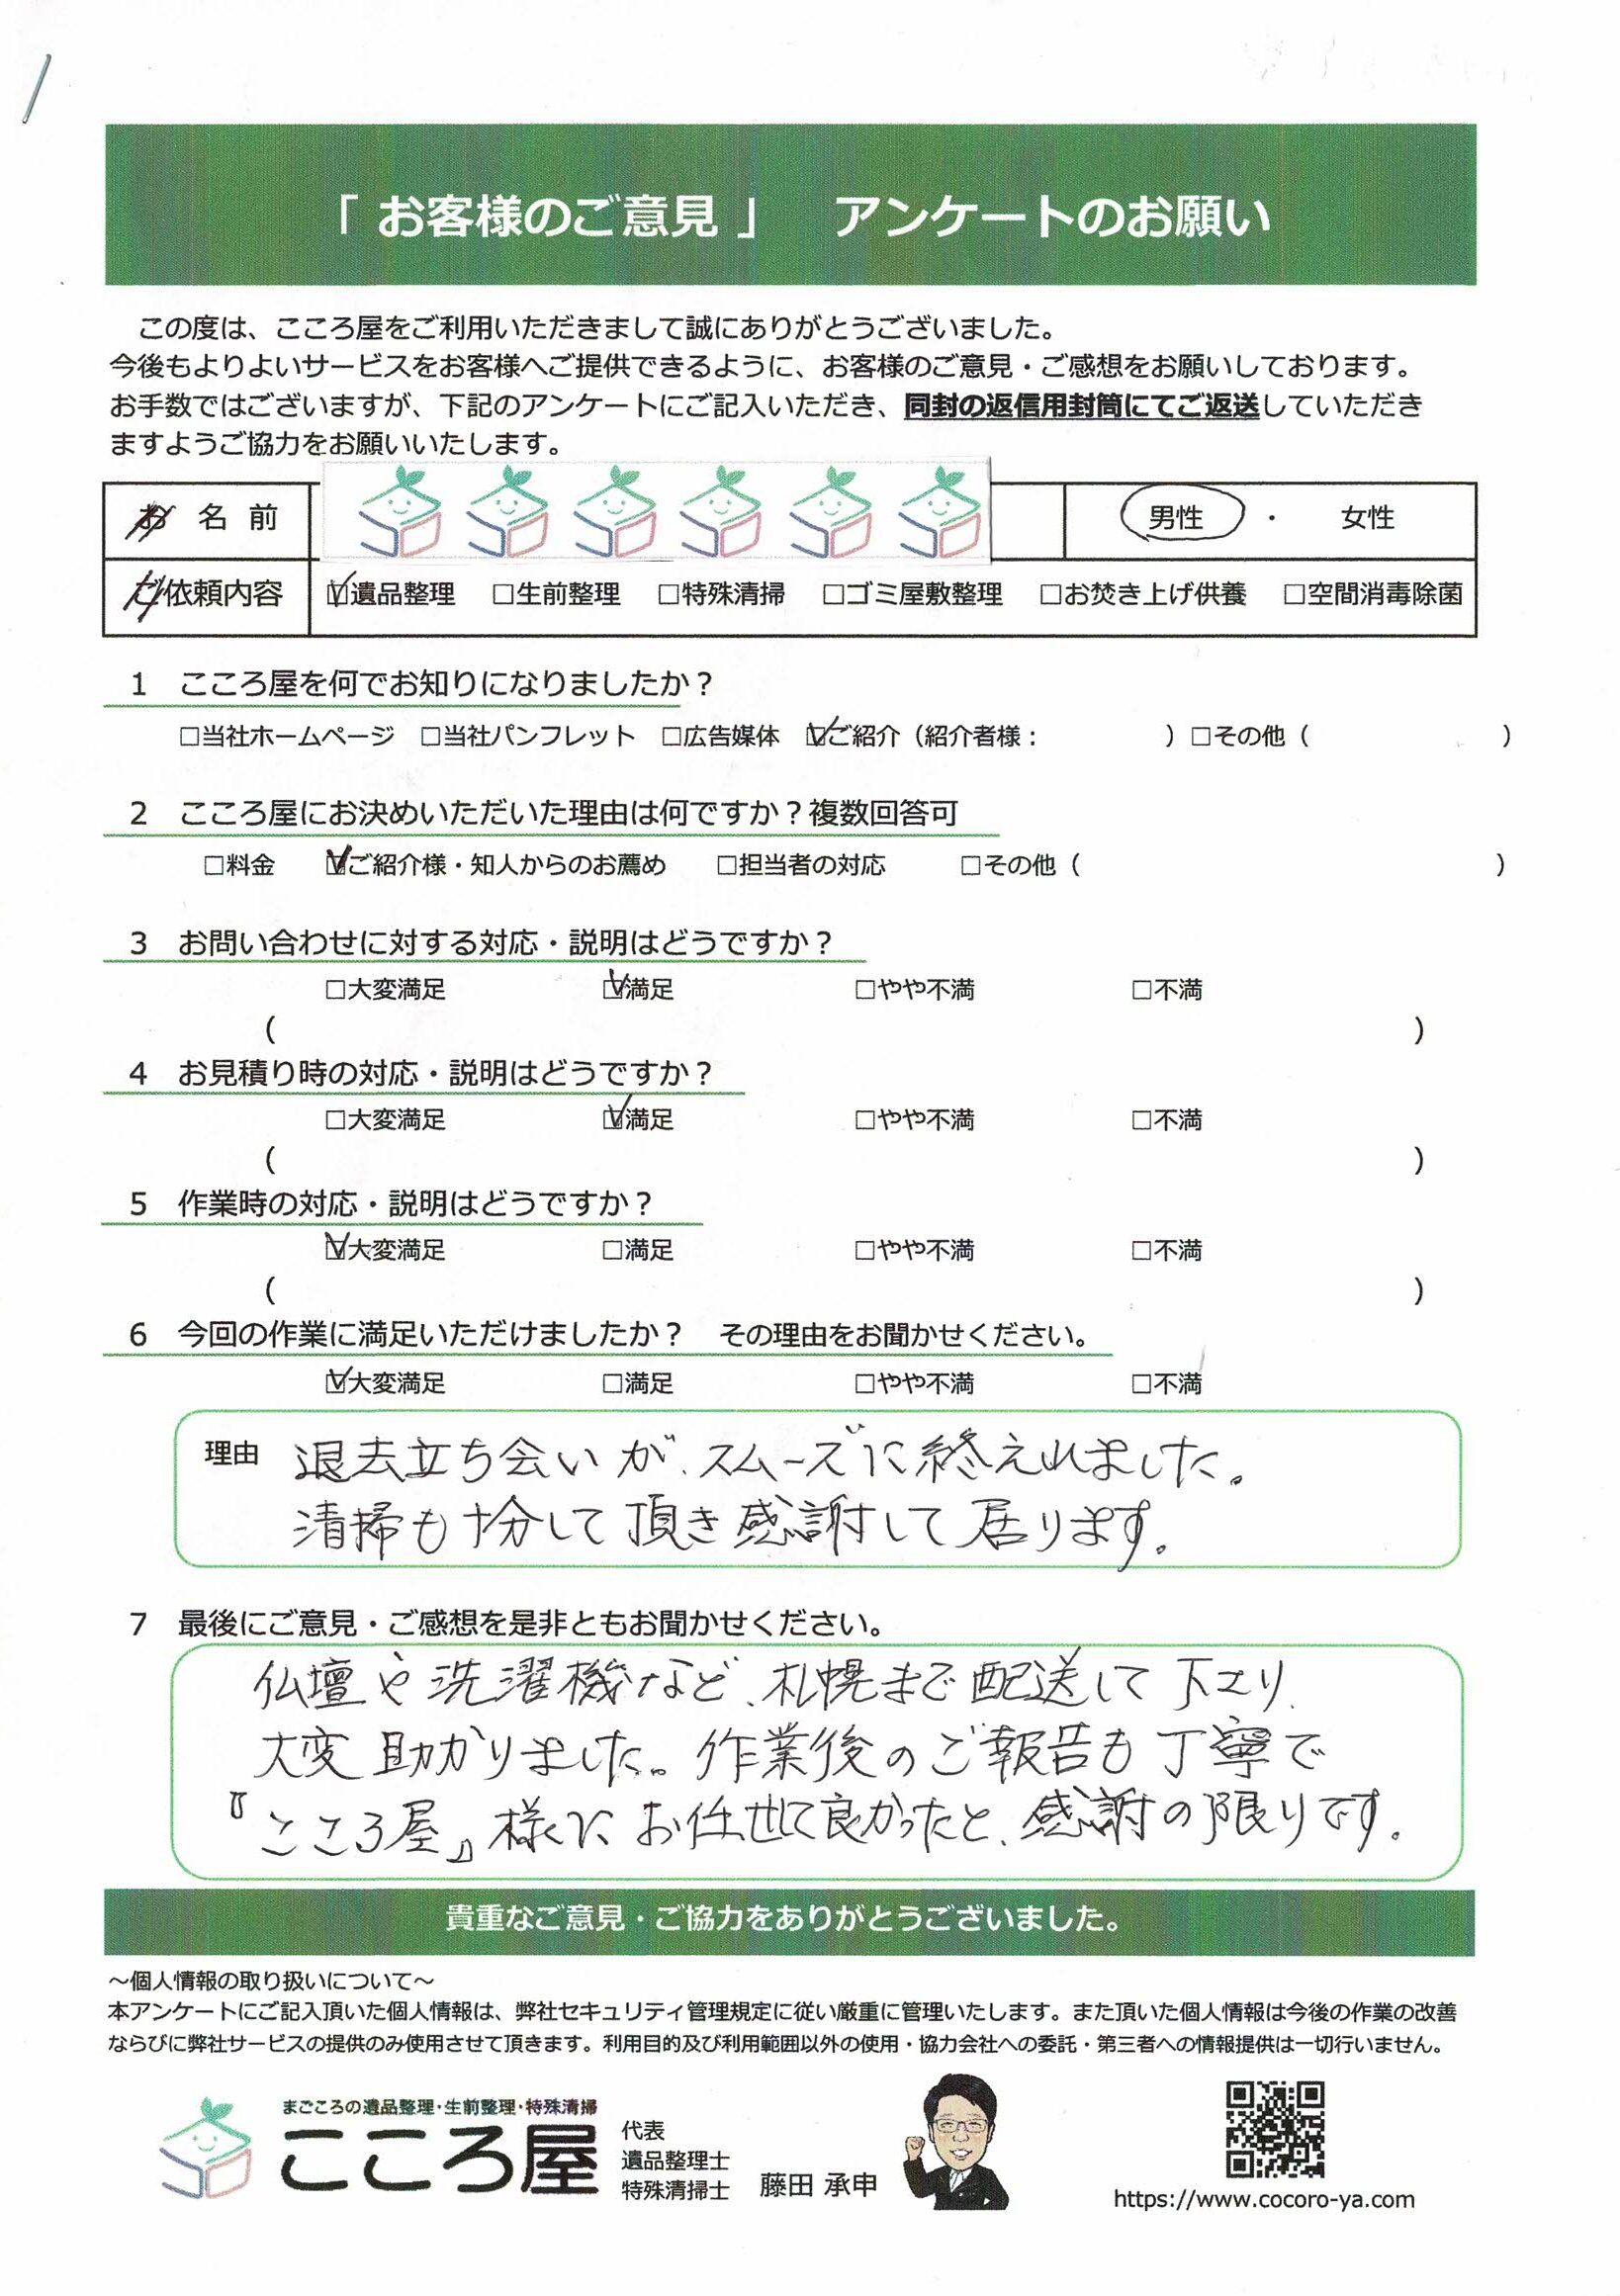 「 お客様のご意見 」 アンケートのお願い
この度は、こころ屋をご利用いただきまして誠にありがとうございました。
今後もよりよいサービスをお客様へご提供できるように、お客様のご意見・ご感想をお願いしております。
お手数ではございますが、下記のアンケートにご記入いただき、同封の返信用封筒にてご返送していただき
ますようご協力をお願いいたします。
お 名 前 男性 ・ 女性
ご依頼内容 ☑遺品整理 □生前整理 □特殊清掃 □ゴミ屋敷整理 □お焚き上げ供養 □空間消毒除菌
1 こころ屋を何でお知りになりましたか？
□当社ホームページ □当社パンフレット □広告媒体 ☑ご紹介（紹介者様： ）□その他（ ）
2 こころ屋にお決めいただいた理由は何ですか？複数回答可
□料金 ☑ご紹介様・知人からのお薦め □担当者の対応 □その他（ ）
3 お問い合わせに対する対応・説明はどうですか？
□大変満足 ☑満足 □やや不満 □不満
（ ）
4 お見積り時の対応・説明はどうですか？
□大変満足 ☑満足 □やや不満 □不満
（ ）
5 作業時の対応・説明はどうですか？
☑大変満足 □満足 □やや不満 □不満
（ ）
6 今回の作業に満足いただけましたか？ その理由をお聞かせください。
☑大変満足 □満足 □やや不満 □不満
理由 退去立ち会いが、スムーズに終えれました。
清掃も十分して頂き感謝して居ります。
7 最後にご意見・ご感想を是非ともお聞かせください。
仏壇や洗濯機など、札幌まで配送して下さり、
大変助かりました。作業後のご報告も丁寧で
『こころ屋』様に お任せして良かったと、感謝の限りです。
貴重なご意見・ご協力をありがとうございました。
～個人情報の取り扱いについて～
本アンケートにご記入頂いた個人情報は、弊社セキュリティ管理規定に従い厳重に管理いたします。また頂いた個人情報は今後の作業の改善
ならびに弊社サービスの提供のみ使用させて頂きます。利用目的及び利用範囲以外の使用・協力会社への委託・第三者への情報提供は一切行いません。
まごころの遺品整理・生前整理・特殊清掃
こころ屋
代表
遺品整理士
特殊清掃士 藤田 承申
https://www.cocoro-ya.com